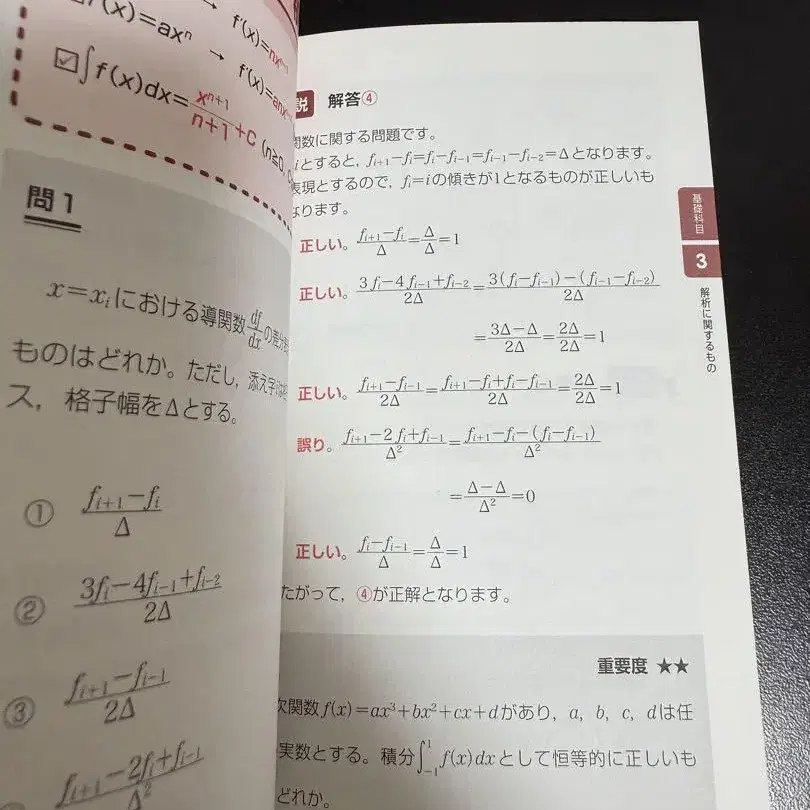 f(x)=axⁿ → f'(x)=nxⁿ⁻¹
→ f'(x)=anxⁿ⁻¹
☑∫f(x)dx=xⁿ⁺¹/n+1+C (n≧0,
問1
x=xᵢにおける導関数df/dxの差分表
ものはどれか。ただし,添え字iは格
ス,格子幅をΔとする。
① fᵢ₊₁−fᵢ/Δ
② 3fᵢ−4fᵢ₋₁+fᵢ₋₂/2Δ
③ fᵢ₊₁−fᵢ₋₁/2Δ
fᵢ₊₁−2fᵢ+fᵢ₋₁/Δ²
説 解答④
関数に関する問題です。
iとすると,fᵢ₊₁−fᵢ=fᵢ−fᵢ₋₁=fᵢ₋₁−fᵢ₋₂=Δとなります。
表現とするので,fᵢ=iの傾きが1となるものが正しいも
なります。
正しい。fᵢ₊₁−fᵢ/Δ=Δ/Δ=1
正しい。3fᵢ−4fᵢ₋₁+fᵢ₋₂/2Δ=3(fᵢ−fᵢ₋₁)−(fᵢ₋₁−fᵢ₋₂)/2Δ
=3Δ−Δ/2Δ=2Δ/2Δ=1
正しい。fᵢ₊₁−fᵢ₋₁/2Δ=fᵢ₊₁−fᵢ+fᵢ−fᵢ₋₁/2Δ=2Δ/2Δ=1
誤り。fᵢ₊₁−2fᵢ+fᵢ₋₁/Δ²=fᵢ₊₁−fᵢ−(fᵢ−fᵢ₋₁)/Δ²
=Δ−Δ/Δ²=0
正しい。fᵢ−fᵢ₋₁/Δ=Δ/Δ=1
たがって,④が正解となります。
重要度 ★★
次関数f(x)=ax³+bx²+cx+dがあり,a,b,c,dは任
実数とする。積分∫₋₁¹f(x)dxとして恒等的に正しいも
どれか。
基礎科目
3
解析に関するもの